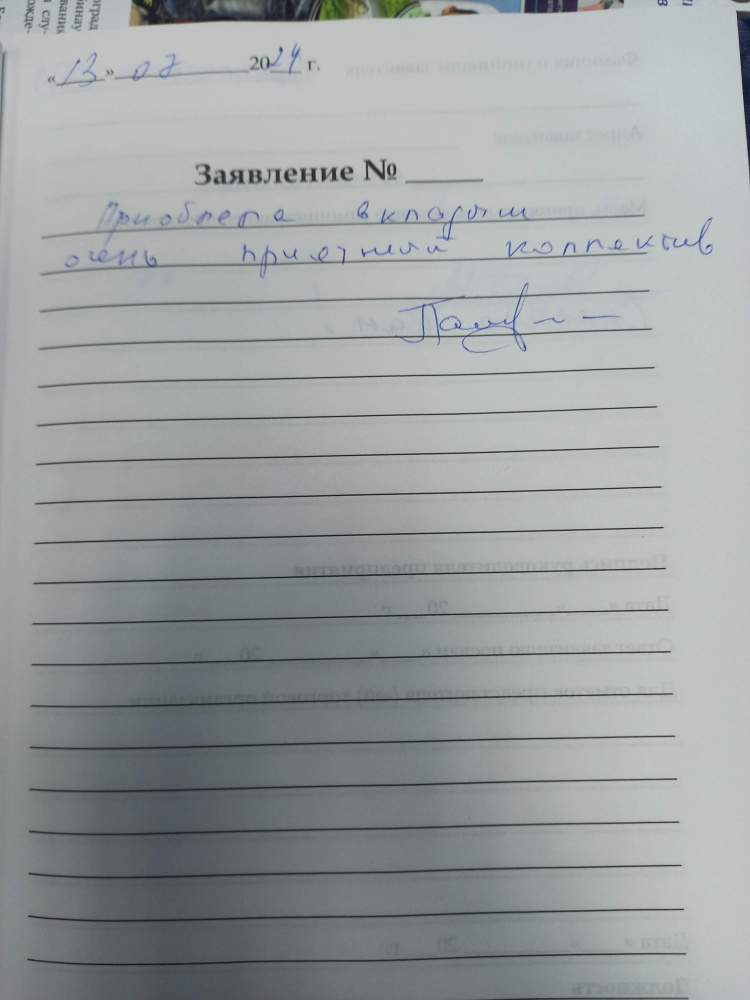 «13» 07 2024 г.
Заявление №
Приобрела вкладыш
очень приятный коллектив